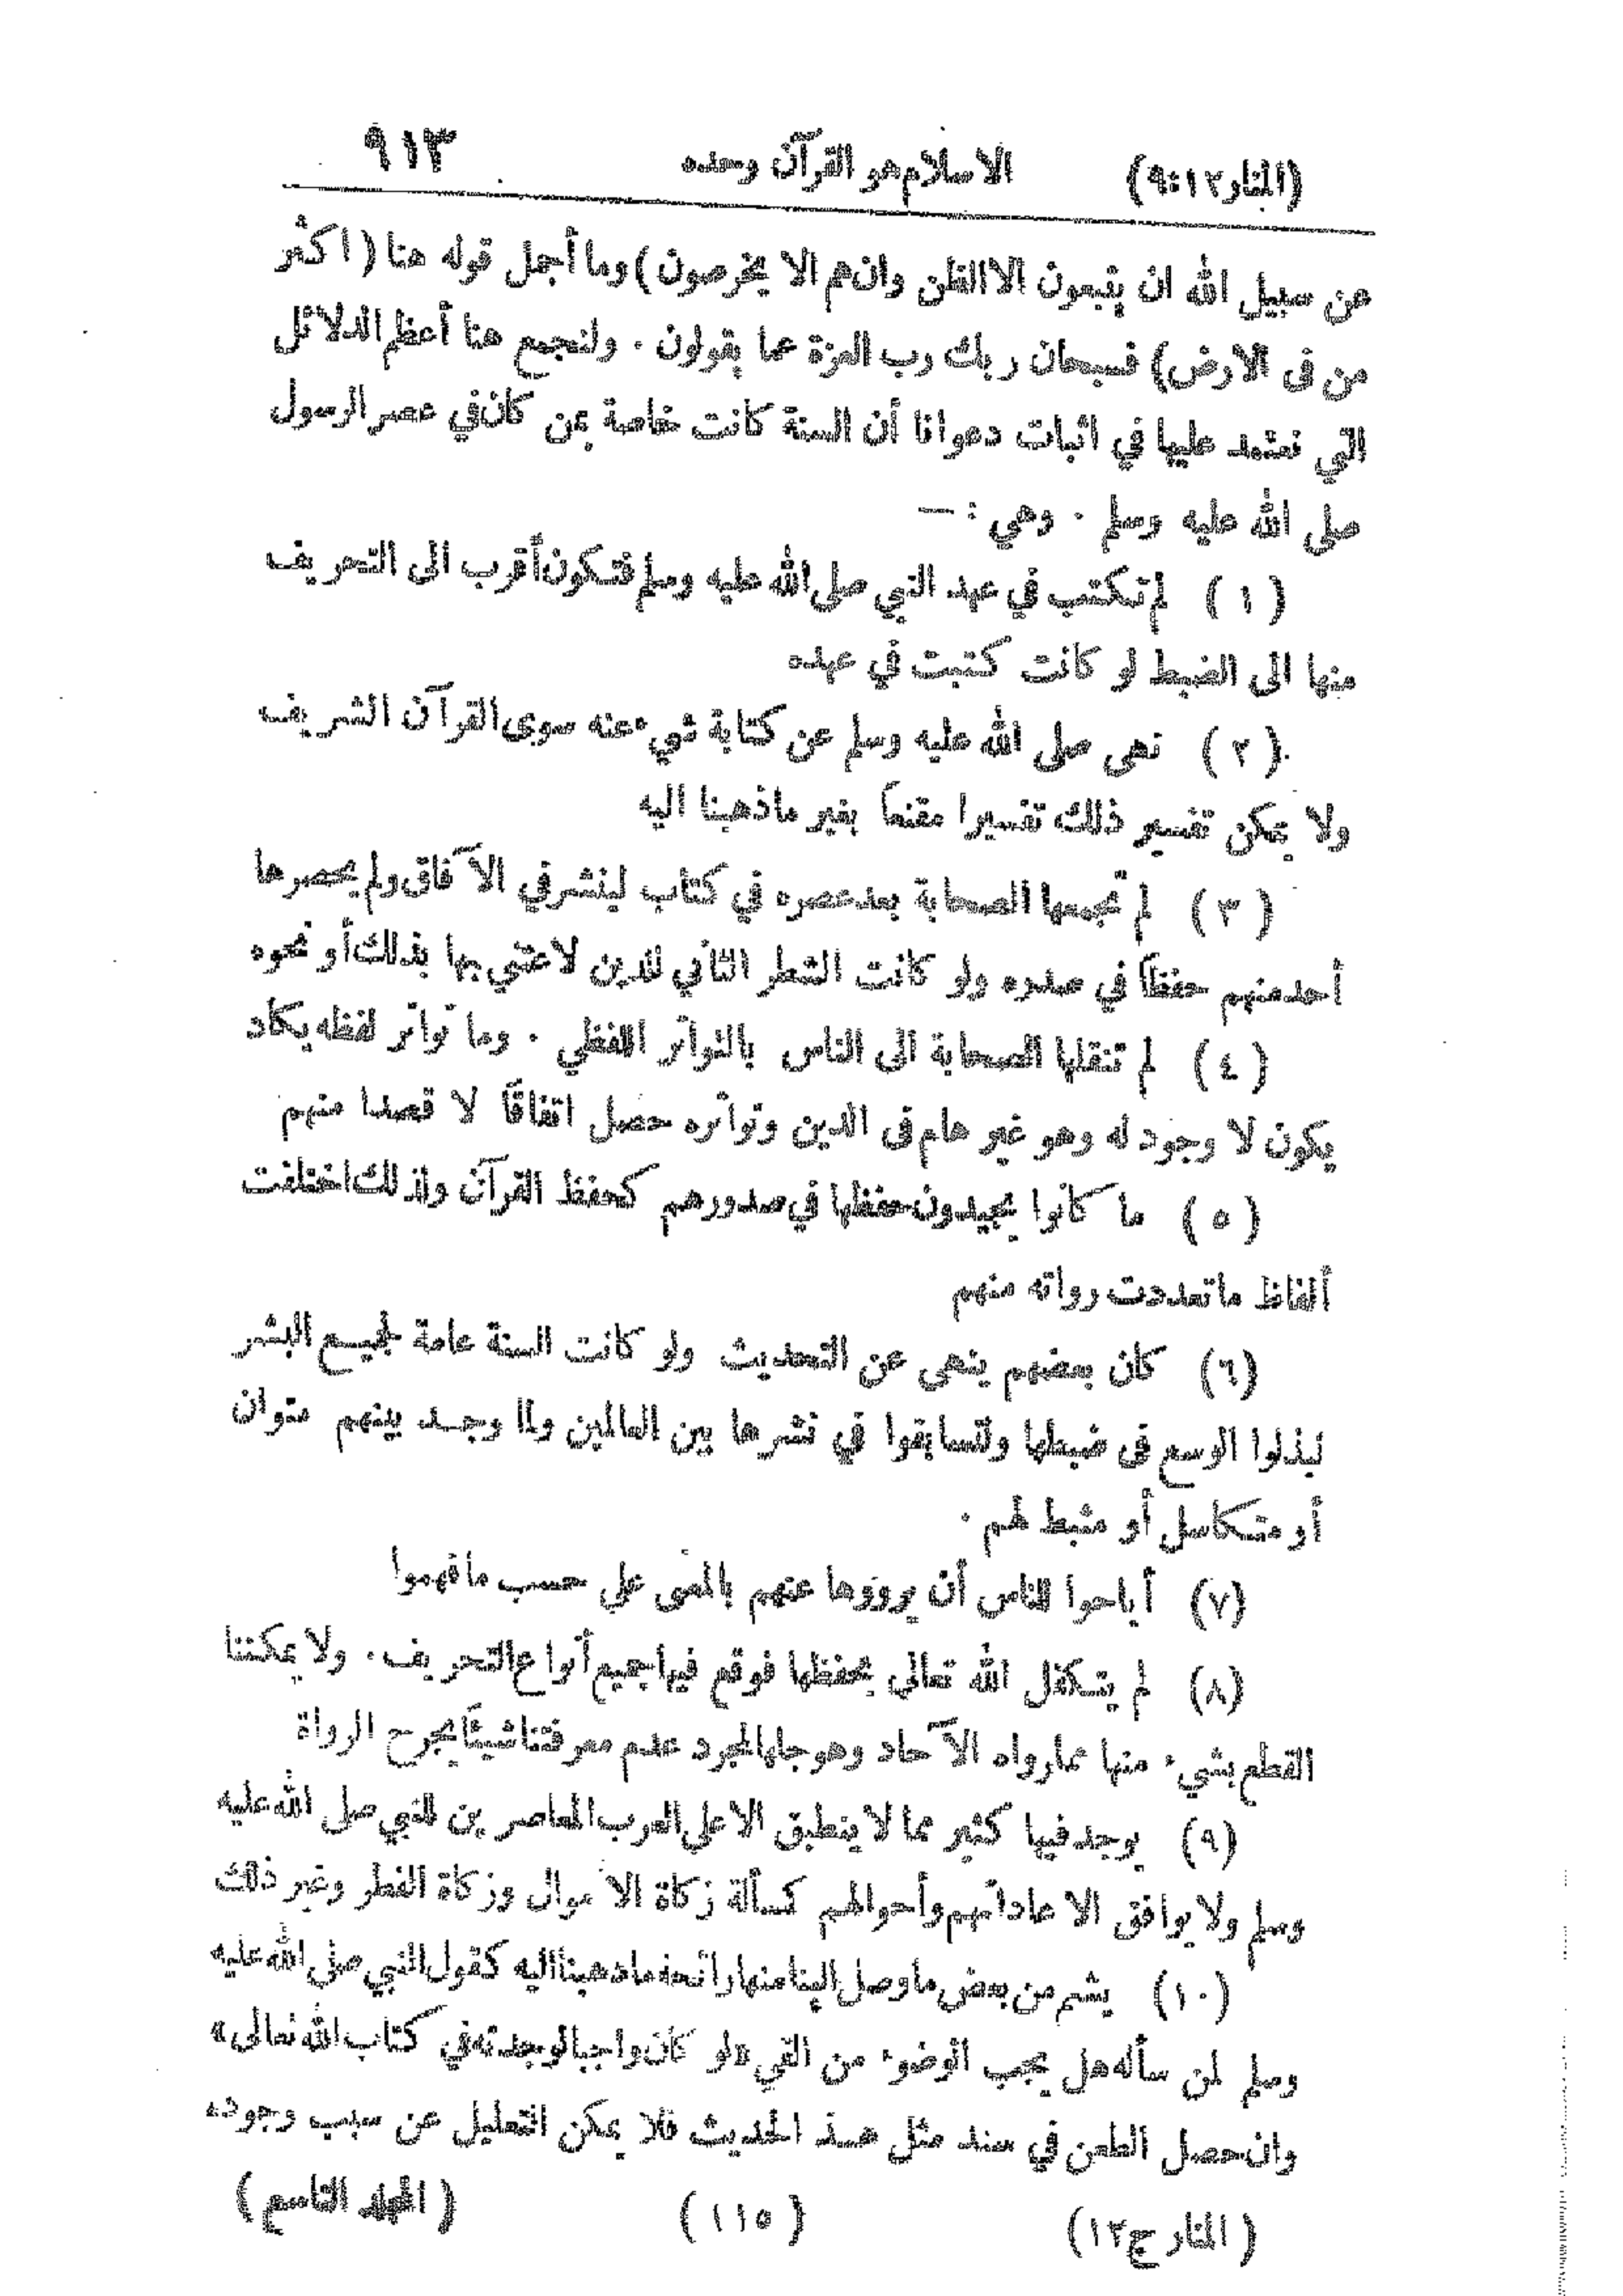 (المنار١٢:٩) الاسلام هو القرآن وحده ٩١٣
عن سبيل الله ان يتبعون الا الظن وان هم الا يخرصون) وما أجمل قوله هنا (اكثر
من فى الارض) فسبحان ربك رب العزة عما يقولون . ولنجمع هنا أعظم الدلائل
التي نعتمد عليها في اثبات دعوانا أن السنة كانت خاصة بمن كان في عصر الرسول
صلى الله عليه وسلم . وهي : —
(١) لم تكتب في عهد النبي صلى الله عليه وسلم فتكون أقرب الى التحريف
منها الى الضبط لو كانت كتبت في عهده
(٢) نهى صلى الله عليه وسلم عن كتابة شيء عنه سوى القرآن الشريف
ولا يمكن تفسير ذلك تفسيرا مقنعاً بغير ما ذهبنا اليه
(٣) لم تجمعها الصحابة بعد عصره في كتاب لينشر في الآفاق ولم يحصرها
أحد منهم حفظاً في صدره ولو كانت الشطر الثاني للدين لاعتني بها بذلك أو نحوه
(٤) لم تنقلها الصحابة الى الناس بالتواتر اللفظي . وما تواتر لفظه يكاد
يكون لا وجود له وهو غير هام فى الدين وتواتره حصل اتفاقاً لا قصدا منهم
(٥) ما كانوا يجيدون حفظها في صدورهم كحفظ القرآن ولذلك اختلفت
ألفاظ ما تعددت رواته منهم
(٦) كان بعضهم ينهى عن التحديث ولو كانت السنة عامة لجميع البشر
لبذلوا الوسع فى ضبطها ولتسابقوا في نشرها بين العالمين ولما وجد بينهم متوان
أو متكاسل أو مثبط لهم .
(٧) أباحوا للناس أن يرووها عنهم بالمعنى على حسب ما فهموا
(٨) لم يتكفل الله تعالى بحفظها فوقع فيها جميع أنواع التحريف . ولا يمكننا
القطع بشيء منها مما رواه الآحاد وهو جلها لمجرد عدم معرفتنا شيئاً يجرح الرواة
(٩) يوجد فيها كثير مما لا ينطبق الا على العرب المعاصرين للنبي صلى الله عليه
وسلم ولا يوافق الا عاداتهم وأحوالهم كمسألة زكاة الاموال وزكاة الفطر وغير ذلك
(١٠) يشم من بعض ما وصل الينا منها رائحة ما ذهبنا اليه كقول النبي صلى الله عليه
وسلم لمن سأله هل يجب الوضوء من القيء «لو كان واجبا لوجدته في كتاب الله تعالى»
وان حصل الطعن في سند مثل هذ الحديث فلا يمكن التعليل عن سبب وجوده
(المنار ج١٢) (١١٥) (المجلد التاسع)